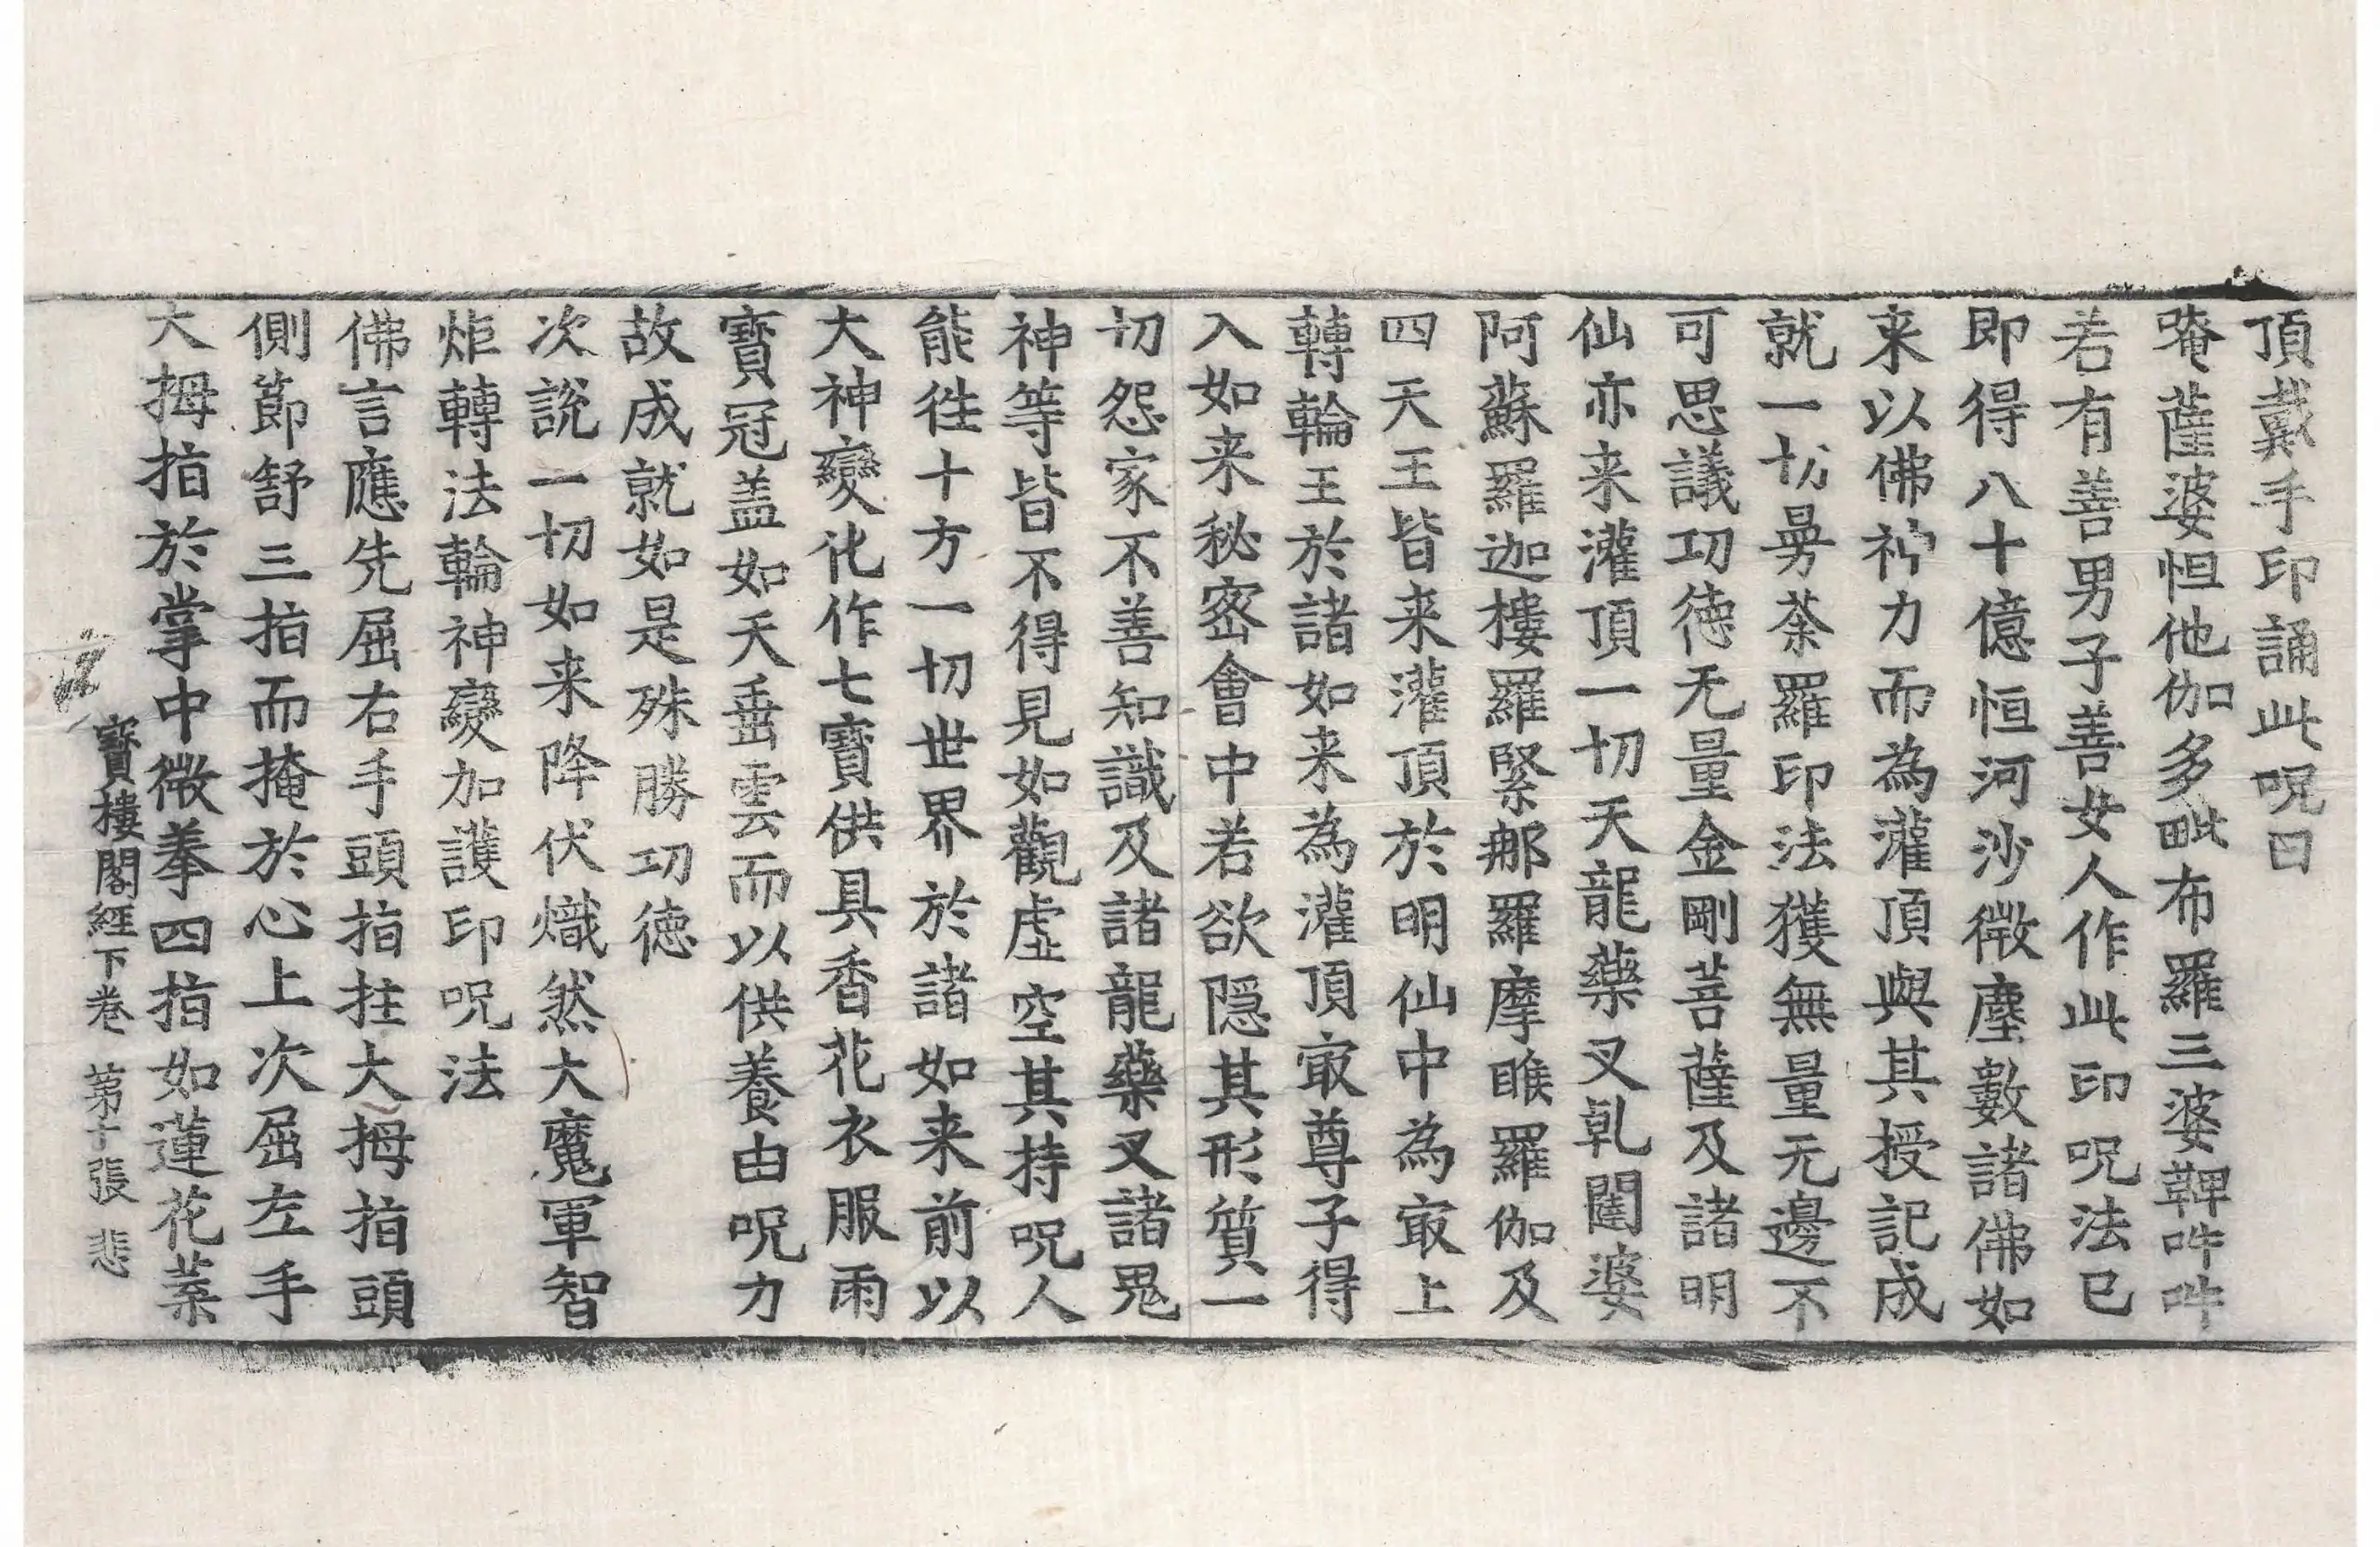 頂戴手印誦此呪曰
唵薩婆怛他伽多毗布羅三婆鞞吽吽
若有善男子善女人作此印呪法已
即得八十億恒河沙微塵數諸佛如
来以佛神力而為灌頂與其授記成
就一切曼荼羅印法獲無量无邊不
可思議功徳无量金剛菩薩及諸明
仙亦来灌頂一切天龍藥叉乹闥婆
阿蘇羅迦樓羅緊那羅摩睺羅伽及
四天王皆来灌頂於明仙中為㝡上
轉輪王於諸如来為灌頂㝡尊子得
入如来秘密會中若欲隱其形質一
切怨家不善知識及諸龍藥叉諸鬼
神等皆不得見如觀虛空其持呪人
能徃十方一切世界於諸如来前以
大神變化作七寶供具香花衣服雨
寶冠盖如天垂雲而以供養由呪力
故成就如是殊勝功徳
次說一切如来降伏熾然大魔軍智
炬轉法輪神變加護印呪法
佛言應先屈右手頭指拄大拇指頭
側節舒三指而掩於心上次屈左手
大拇指於掌中微拳四指如蓮花葉
寶樓閣經下卷 第十張 悲